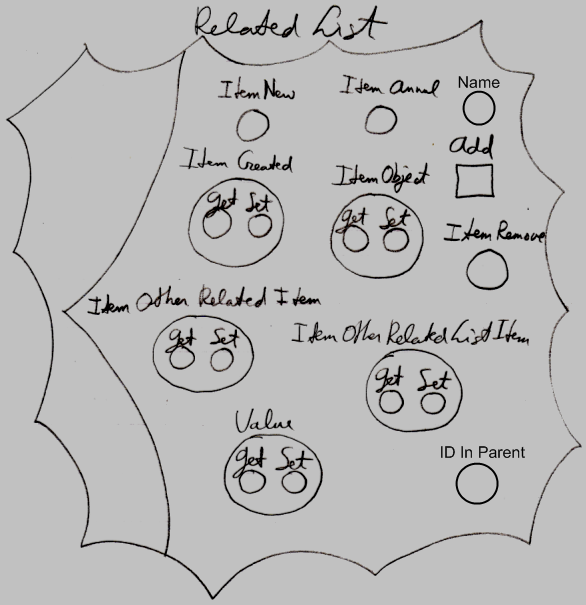 Related List
Item New
Item Annul
Name
Add
Item Created
Get Set
Item Object
Get Set
Item Remove
Item Other Related Item
Get Set
Item Other Related List Item
Get Set
Value
Get Set
ID In Parent